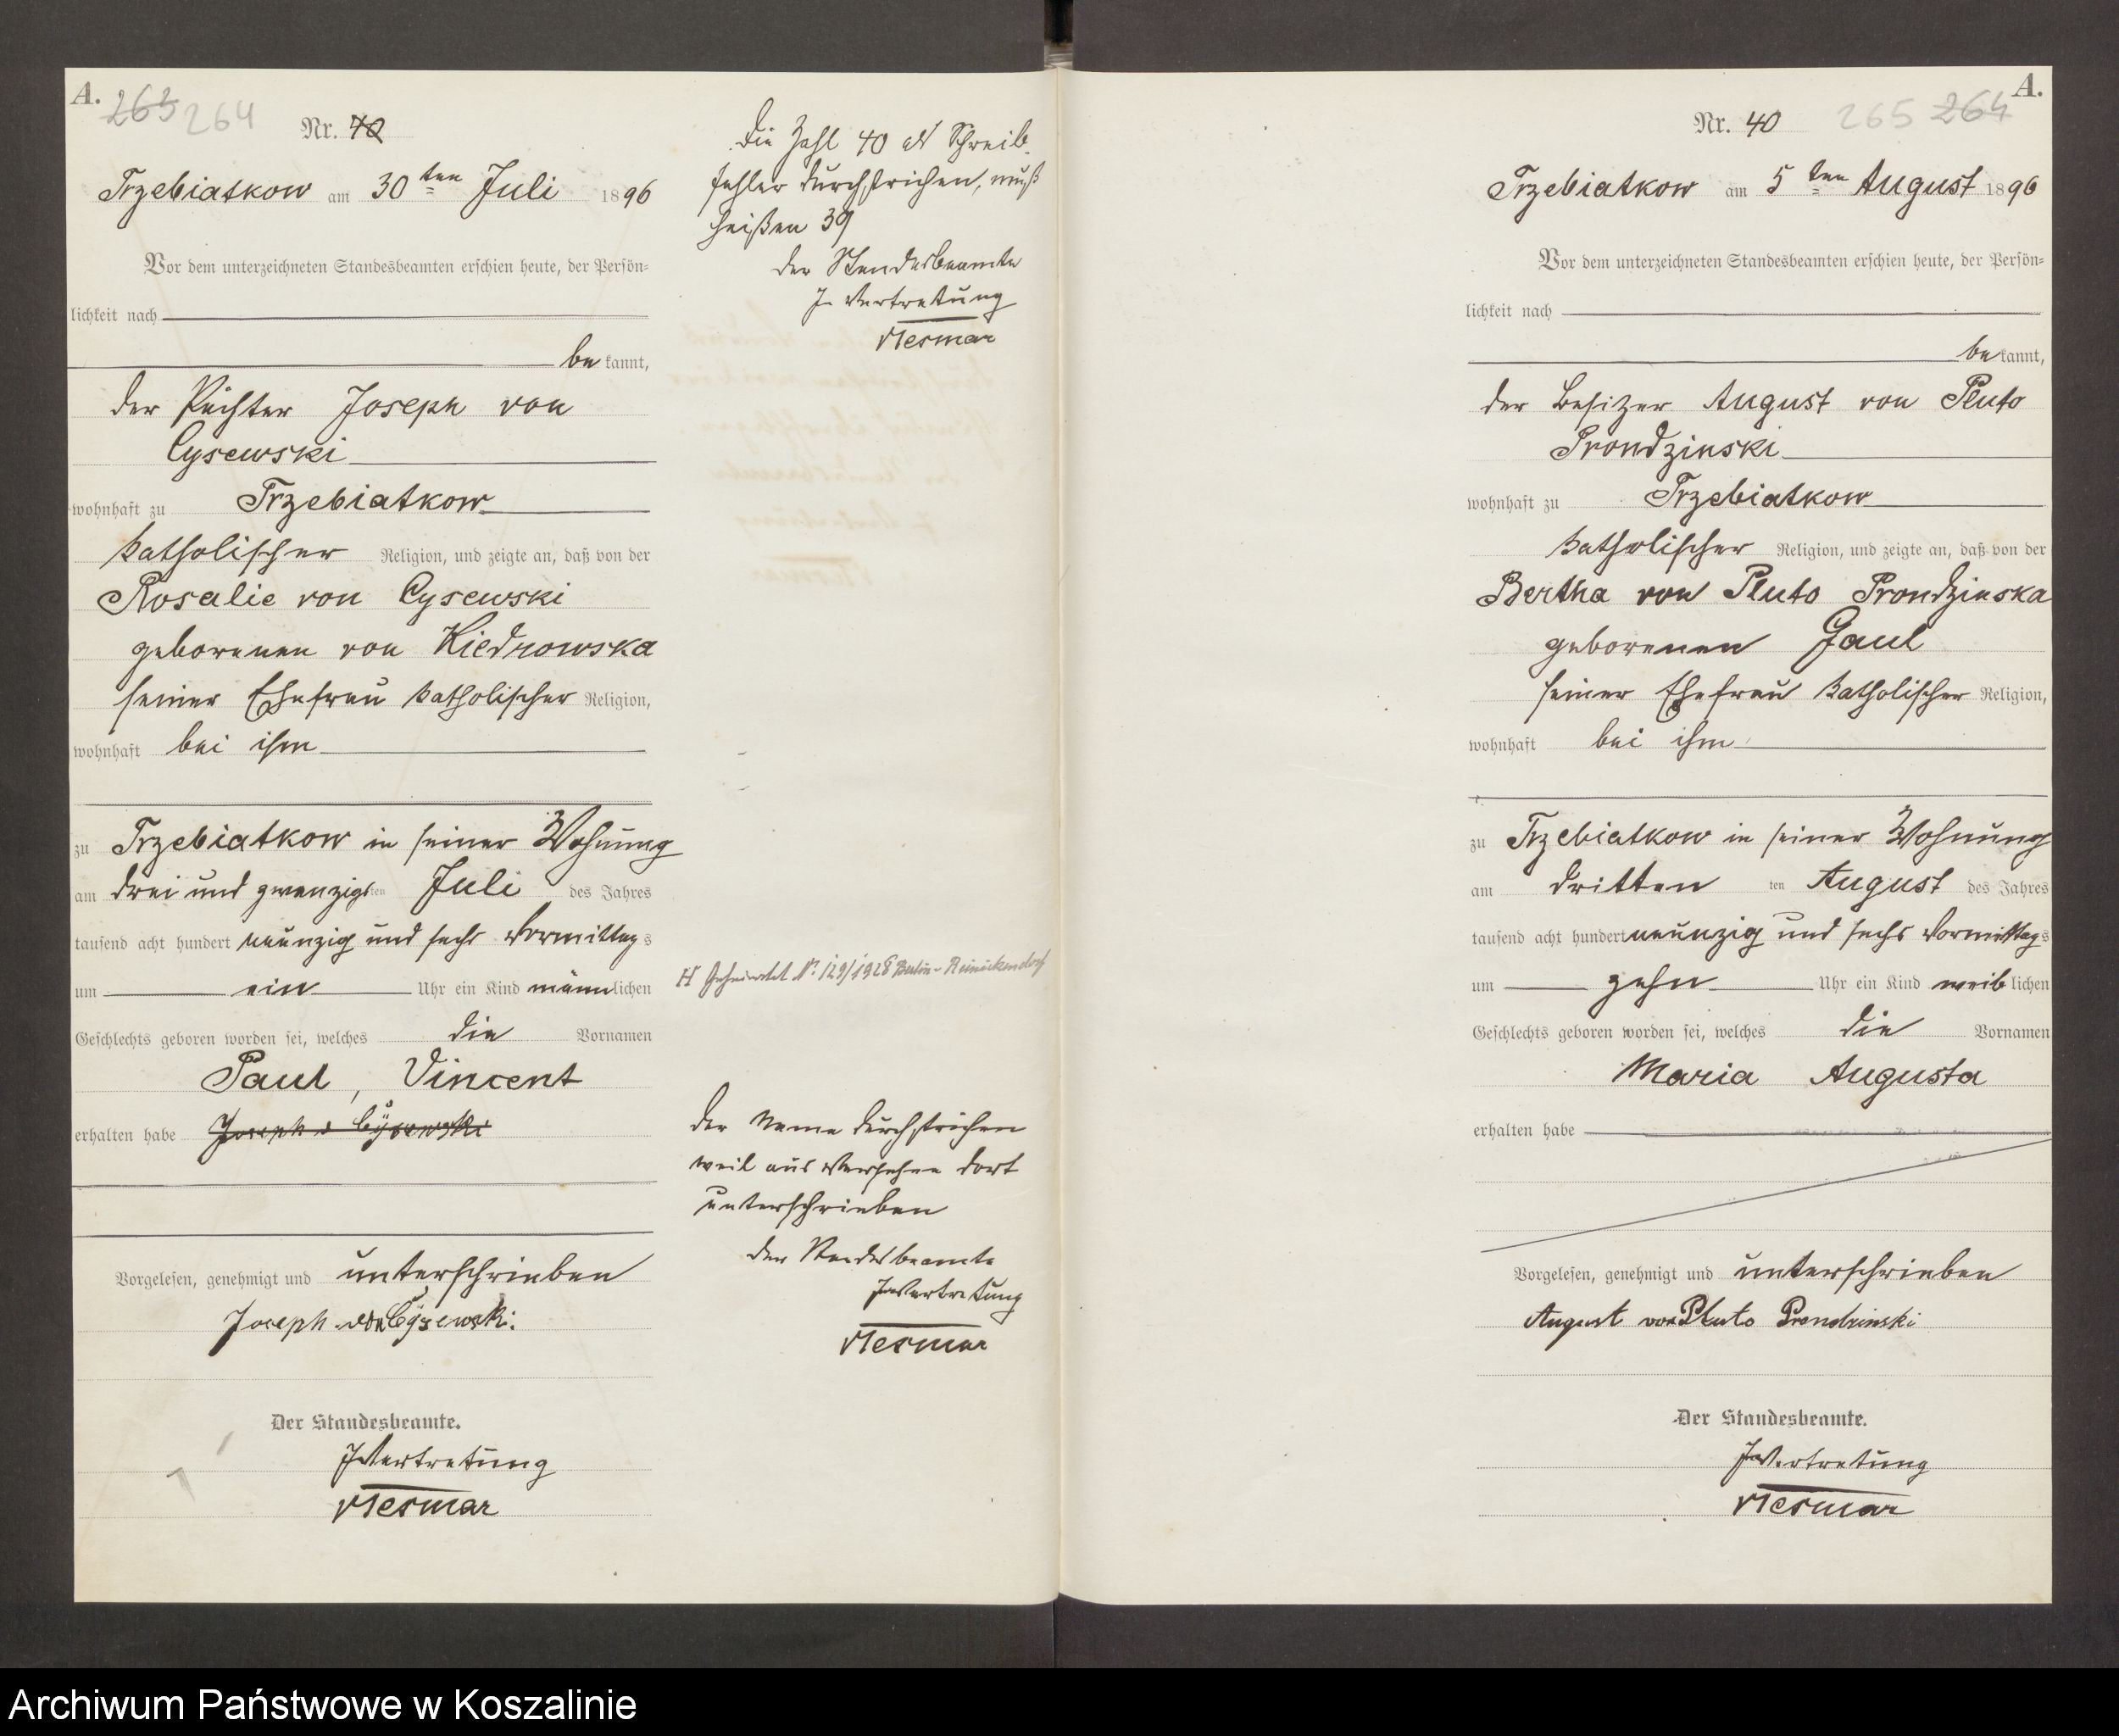 A.
263 264
Nr. 40
Trzebiatkow am 30ten Juli 1896
Vor dem unterzeichneten Standesbeamten erschien heute, der Persön-
lichkeit nach
be kannt,
der Pächter Joseph von
Cysewski
wohnhaft zu Trzebiatkow
katholischer Religion, und zeigte an, daß von der
Rosalie von Cysewski
geborenen von Kiedrowska
seiner Ehefrau katholischer Religion,
wohnhaft bei ihm
zu Trzebiatkow in seiner Wohnung
am drei und zwanzigsten Juli des Jahres
tausend acht hundert neunzig und sechs Vormittags
um ein Uhr ein Kind männlichen
Geschlechts geboren worden sei, welches die Vornamen
Paul, Vincent
erhalten habe Joseph v Cysewski
Vorgelesen, genehmigt und unterschrieben
Joseph von Cysewski.
Der Standesbeamte.
In Vertretung
vTesmar
Die Zahl 40 als Schreib-
fehler durchstrichen, muß
heißen 39
Der Standesbeamte
In Vertretung
vTesmar
H Geheiratet Nr. 129/1928 Berlin-Reinickendorf
Der Name durchstrichen
weil aus Versehen dort
unterschrieben
Der Standesbeamte
In Vertretung
vTesmar
A.
Nr. 40 265 264
Trzebiatkow am 5ten August 1896
Vor dem unterzeichneten Standesbeamten erschien heute, der Persön-
lichkeit nach
be kannt,
der Besitzer August von Pluto
Prondzinski
wohnhaft zu Trzebiatkow
katholischer Religion, und zeigte an, daß von der
Bertha von Pluto Prondzinska
geborenen Gaul
seiner Ehefrau katholischer Religion,
wohnhaft bei ihm
zu Trzebiatkow in seiner Wohnung
am dritten ten August des Jahres
tausend acht hundert neunzig und sechs Vormittags
um zehn Uhr ein Kind weiblichen
Geschlechts geboren worden sei, welches die Vornamen
Maria Augusta
erhalten habe
Vorgelesen, genehmigt und unterschrieben
August von Pluto Prondzinski
Der Standesbeamte.
In Vertretung
vTesmar
Archiwum Państwowe w Koszalinie